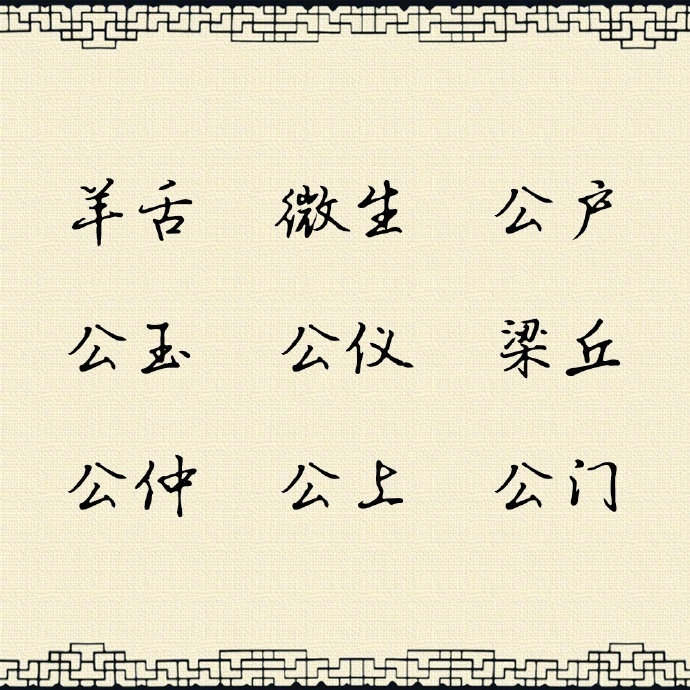 羊舌 微生 公户
公玉 公仪 梁丘
公仲 公上 公门